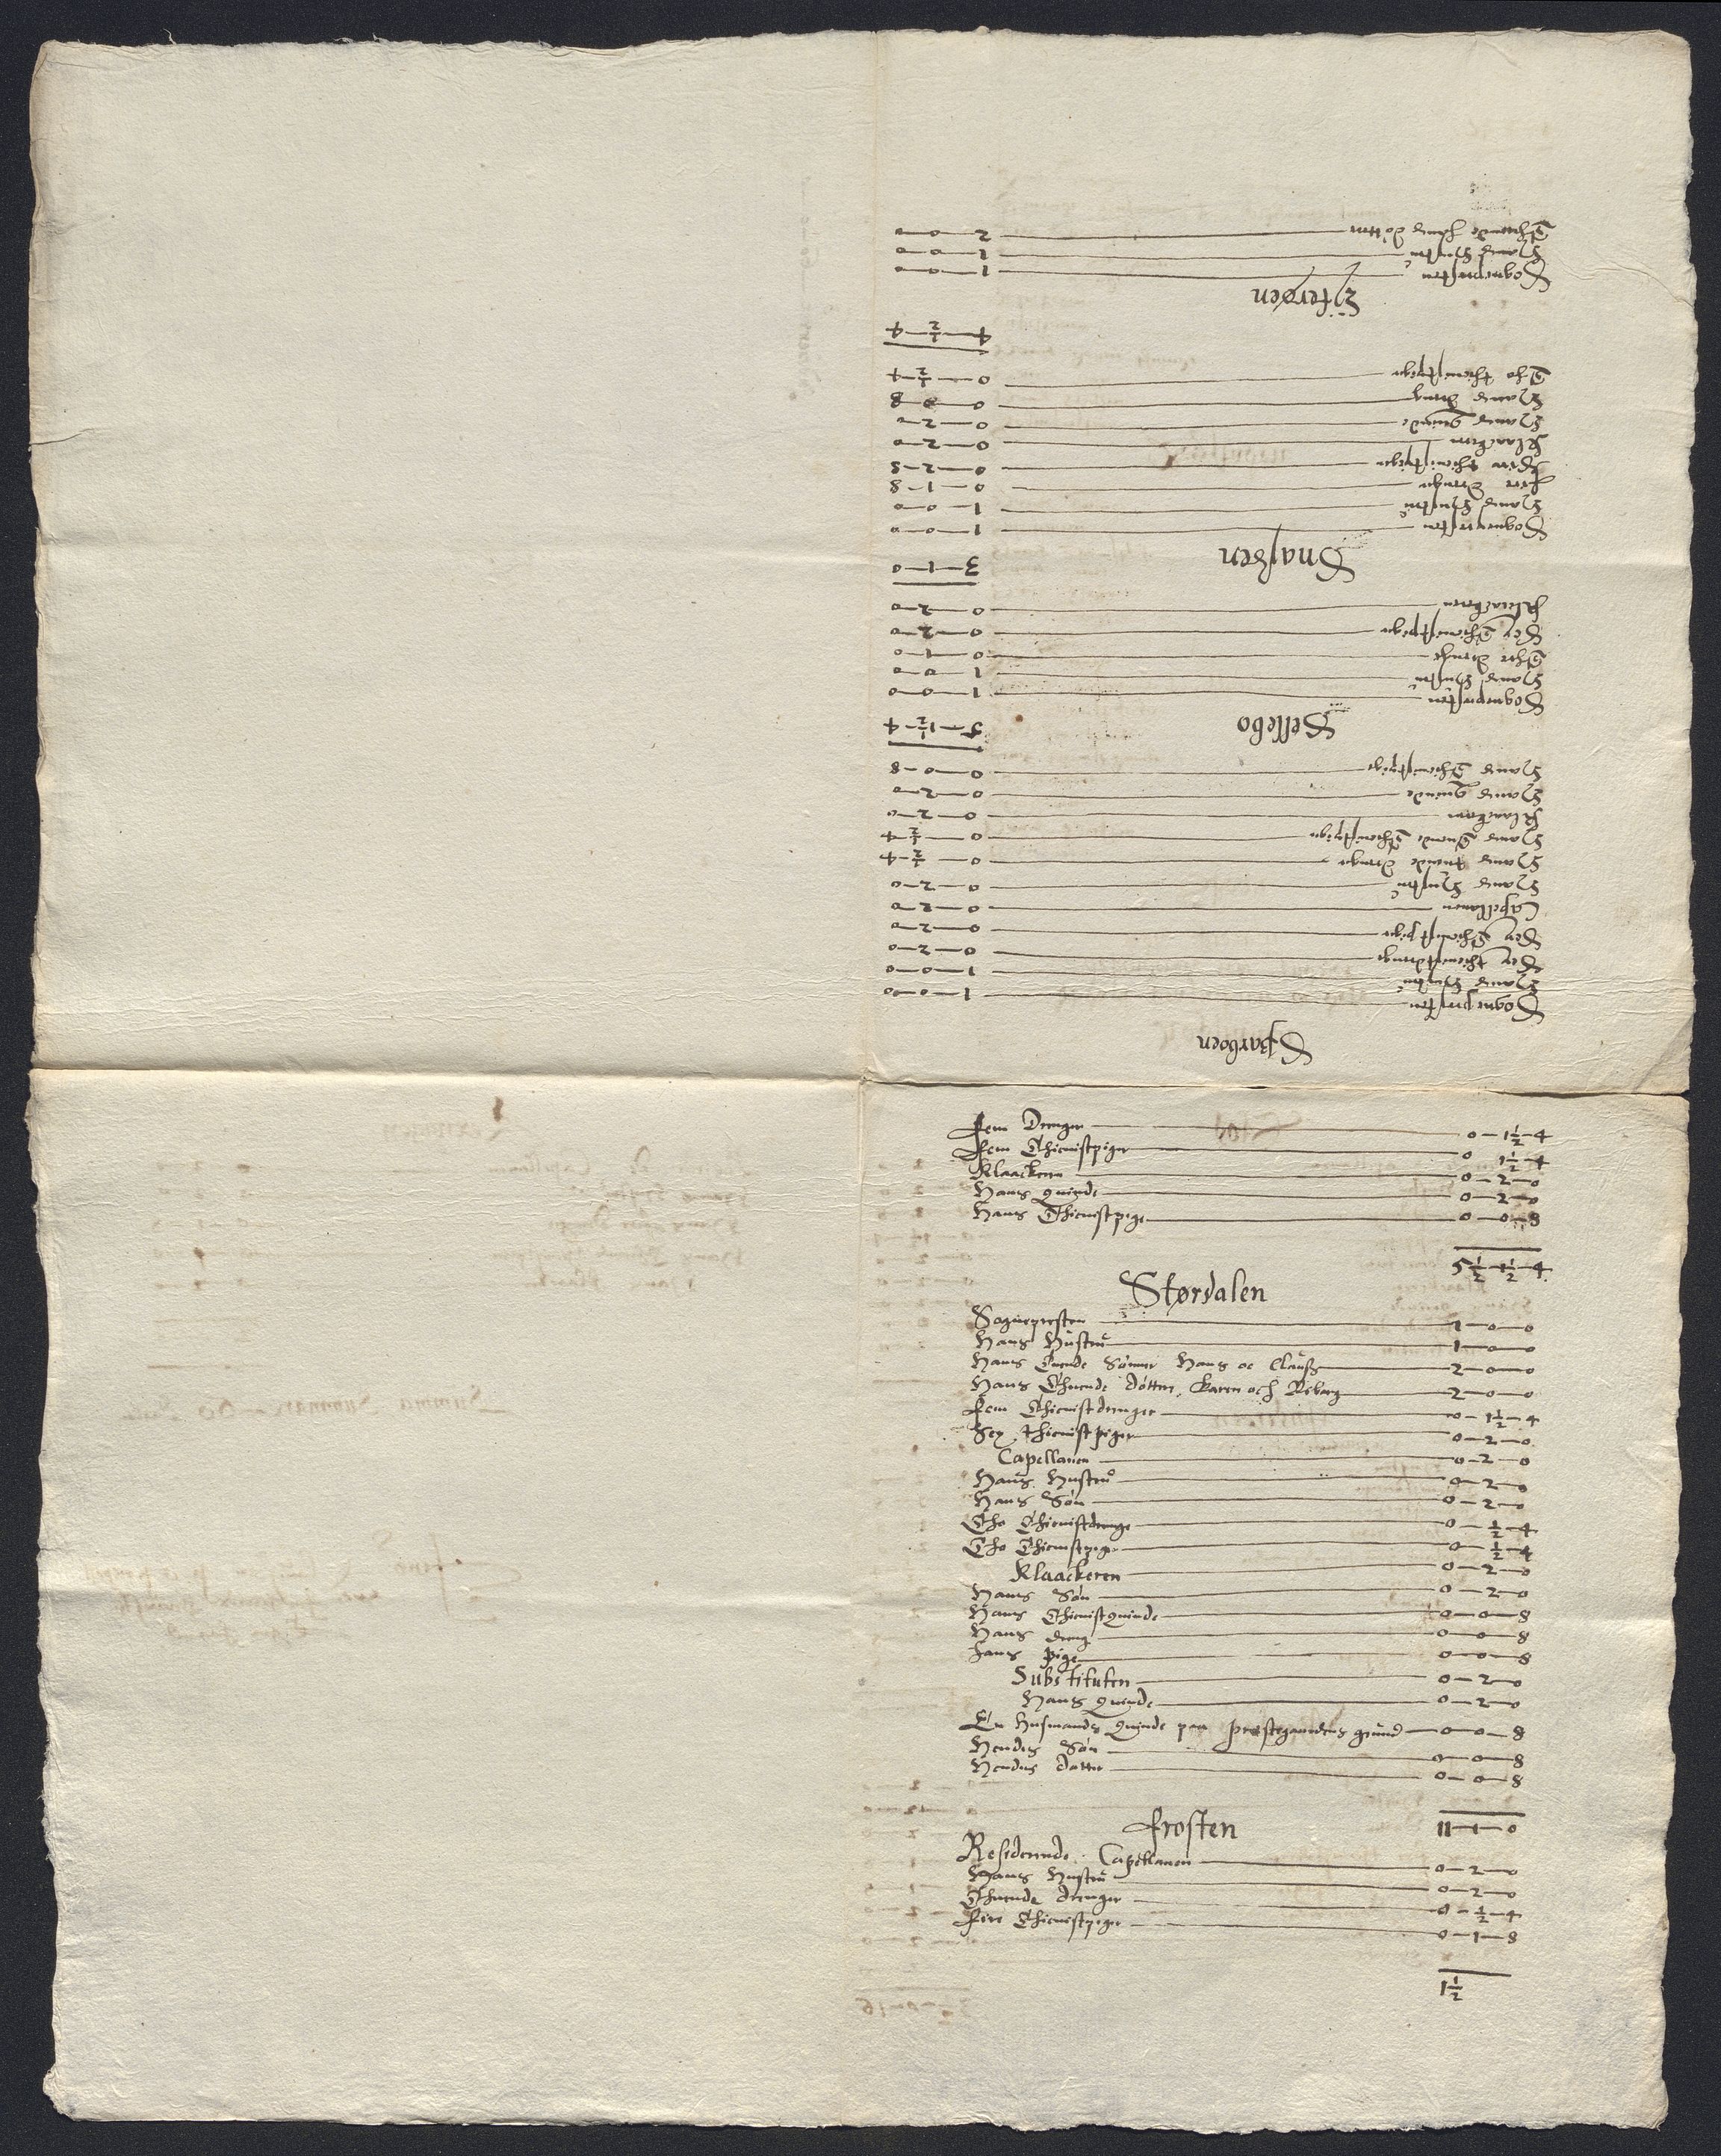 fem Drenger — 0 — 1½ — 4
fem Thienistpiger — 0 1½ — 4
Klaackeren — 0 — 2 — 0
Hans quinde — 0 — 2 — 0
Hans Thienistpige — 0 — 0 — 8
5½ — 1½ — 4
Størdalen
Sognepresten — 1 — 0 — 0
Hans Hustru — 1 — 0 — 0
Hans Tuende Sønner Hans oc Clauß — 2 — 0 — 0
Hans Thuende døttre, Karen och Biborg — 2 — 0 — 0
fem Thienistdrenger — 0 — 1½ — 4
Sex thienistpiger — 0 — 2 — 0
Capellanen — 0 — 2 — 0
Hans Hustru — 0 — 2 — 0
Hans Søn — 0 — 2 — 0
Tho Thienistdrenge — 0 — ½ — 4
Tho Thienistpiger — 0 — ½ — 4
Klaackeren — 0 — 2 — 0
Hans Søn — 0 — 2 — 0
Hans Thienistquinde — 0 — 0 — 8
Hans dreng — 0 — 0 — 8
hans pige — 0 — 0 — 8
Substituten — 0 — 2 — 0
Hans quinde — 0 — 2 — 0
En Husmands quinde paa prestegaardens grund — 0 — 0 — 8
Hendis Søn — 0 — 0 — 8
Hendis datter — 0 — 0 — 8
11 — 1 — 0
frosten
Residerende Capellanen — 0 — 2 — 0
Hans Hustru — 0 — 2 — 0
Thuende drenger — 0 — ½ — 4
fire Thienistpiger — 0 — 1 — 8
1½
Sparboen
Sognepresten — 1 — 0 — 0
Hans Hustru — 1 — 0 — 0
Sex thienistdrenge — 0 — 2 — 0
Sex Thienistpiger — 0 — 2 — 0
Capellanen — 0 — 2 — 0
Hans Hustru — 0 — 2 — 0
Hans tuende drenger — 0 — ½ — 4
Hans Tuende Thienistpiger — 0 — ½ — 4
Klaackeren — 0 — 2 — 0
Hans quinde — 0 — 2 — 0
Hans Thienistpige — 0 — 0 — 8
5 — 1½ — 4
Sellebo
Sognepresten — 1 — 0 — 0
Hans Hustru — 1 — 0 — 0
Thre drenge — 0 — 1 — 0
Sex Thienistpiger — 0 — 2 — 0
Klaackeren — 0 — 2 — 0
3 — 1 — 0
Snaaßen
Sognepresten — 1 — 0 — 0
Hans Hustru — 1 — 0 — 0
fire drenge — 0 — 1 — 8
thienistpiger — 0 — 2 — 3
Klaackeren — 0 — 2 — 0
Hans quinde — 0 — 2 — 0
Hans dreng — 0 — 0 — 8
Tho thienistpiger — 0 — ½ — 4
4 — ½ — 4
Ytterøen
Sognepresten — 1 — 0 — 0
Hans Hustru — 1 — 0 — 0
Thuende hans døttre — 2 — 0 — 0